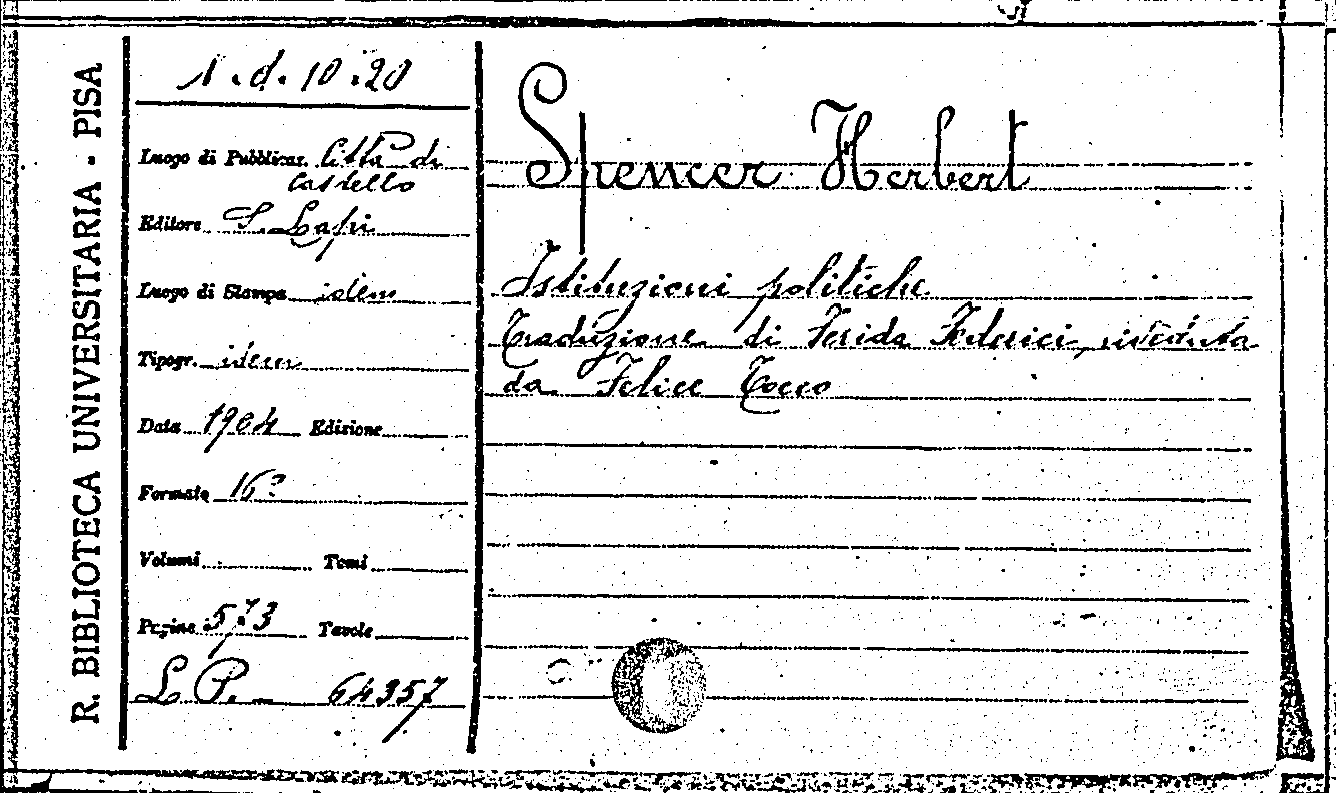 R. BIBLIOTECA UNIVERSITARIA - PISA
1.d.10.20
Luogo di Pubblicaz. Città di
Castello
Editore S. Lapi
Luogo di Stampa idem
Tipogr. idem
Data 1904 Edizione
Formato 16º
Volumi Tomi
Pagine 573 Tavole
L. P. 64357
Spencer Herbert
Istituzioni politiche
Traduzione di Ferida Federici, riveduta
da Felice Tocco